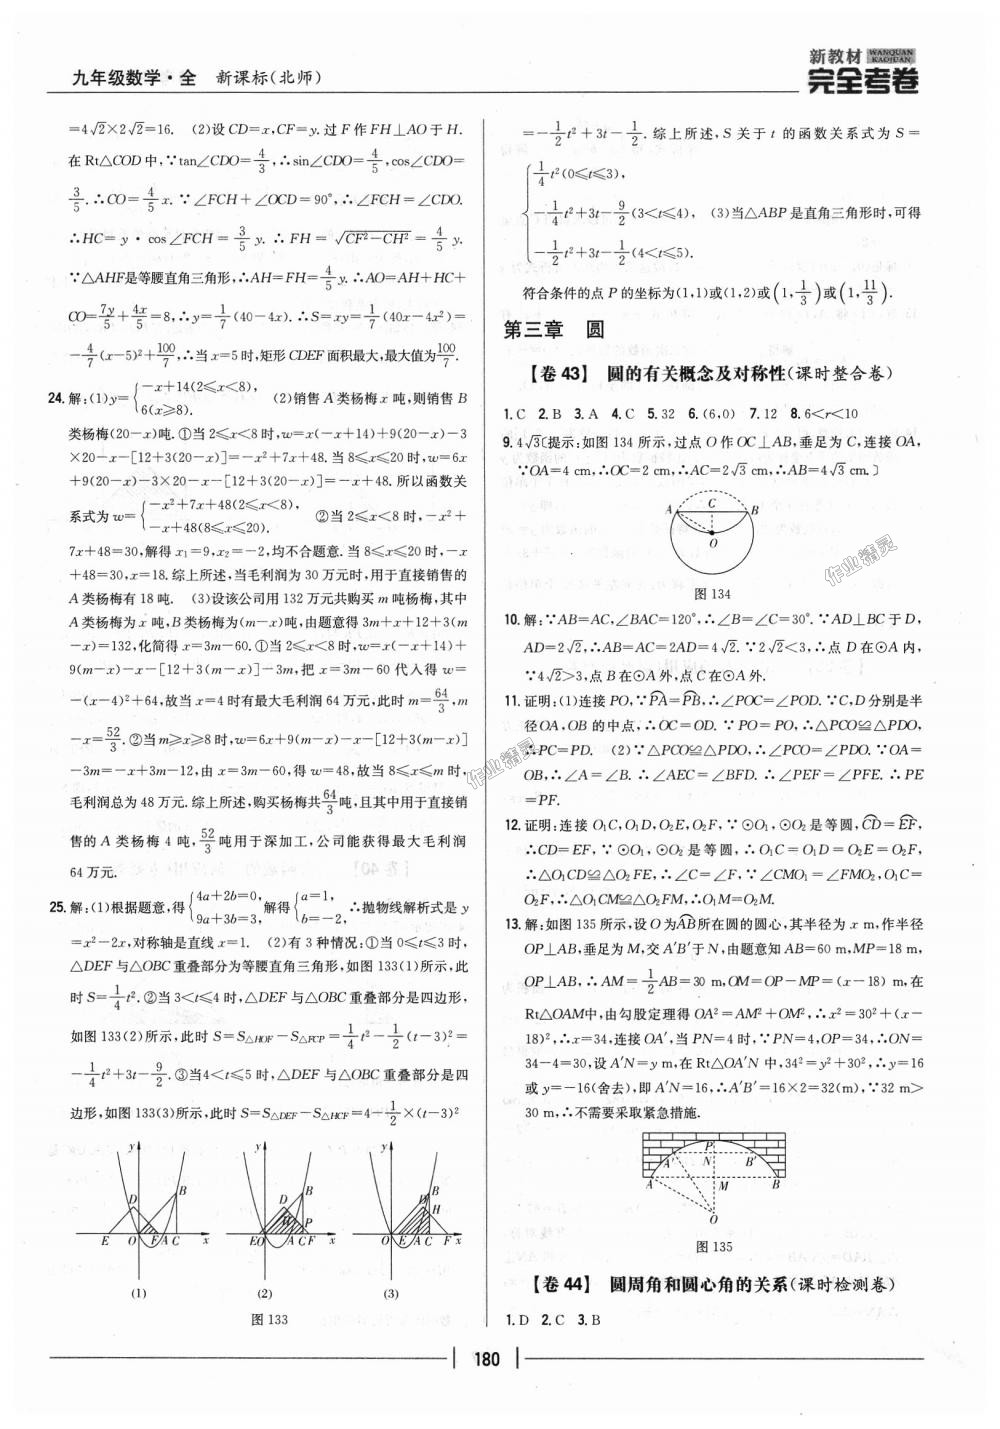 九年级数学·全 新课标(北师)
新教材 WANQUAN KAOJUAN
完全考卷
=4√2×2√2=16. (2)设CD=x,CF=y.过F作FH⊥AO于H.
在Rt△COD中,∵tan∠CDO=4/3,∴sin∠CDO=4/5,cos∠CDO=
3/5.∴CO=4/5x.∵∠FCH+∠OCD=90°,∴∠FCH=∠CDO.
∴HC=y·cos∠FCH=3/5y.∴FH=√(CF²-CH²)=4/5y.
∵△AHF是等腰直角三角形,∴AH=FH=4/5y.∴AO=AH+HC+
CO=7y/5+4x/5=8,∴y=1/7(40-4x).∴S=xy=1/7(40x-4x²)=
-4/7(x-5)²+100/7,∴当x=5时,矩形CDEF面积最大,最大值为100/7.
24.解:(1)y={-x+14(2≤x<8), 6(x≥8). (2)销售A类杨梅x吨,则销售B
类杨梅(20-x)吨.①当2≤x<8时,w=x(-x+14)+9(20-x)-3
×20-x-[12+3(20-x)]=-x²+7x+48.当8≤x≤20时,w=6x
+9(20-x)-3×20-x-[12+3(20-x)]=-x+48.所以函数关
系式为w={-x²+7x+48(2≤x<8), -x+48(8≤x≤20). ②当2≤x<8时,-x²+
7x+48=30,解得x₁=9,x₂=-2,均不合题意.当8≤x≤20时,-x
+48=30,x=18.综上所述,当毛利润为30万元时,用于直接销售的
A类杨梅有18吨. (3)设该公司用132万元共购买m吨杨梅,其中
A类杨梅为x吨,B类杨梅为(m-x)吨,由题意得3m+x+12+3(m
-x)=132,化简得x=3m-60.①当2≤x<8时,w=x(-x+14)+
9(m-x)-x-[12+3(m-x)]-3m,把x=3m-60代入得w=
-(x-4)²+64,故当x=4时有最大毛利润64万元,此时m=64/3,m
-x=52/3.②当m≥x≥8时,w=6x+9(m-x)-x-[12+3(m-x)]
-3m=-x+3m-12,由x=3m-60,得w=48,故当8≤x≤m时,
毛利润总为48万元.综上所述,购买杨梅共64/3吨,且其中用于直接销
售的A类杨梅4吨,52/3吨用于深加工,公司能获得最大毛利润
64万元.
25.解:(1)根据题意,得{4a+2b=0, 9a+3b=3,解得{a=1, b=-2,∴抛物线解析式是y
=x²-2x,对称轴是直线x=1. (2)有3种情况:①当0≤t≤3时,
△DEF与△OBC重叠部分为等腰直角三角形,如图133(1)所示,此
时S=1/4t².②当3<t≤4时,△DEF与△OBC重叠部分是四边形,
如图133(2)所示,此时S=S△HOF-S△PCF=1/4t²-1/2(t-3)²=
-1/4t²+3t-9/2.③当4<t≤5时,△DEF与△OBC重叠部分是四
边形,如图133(3)所示,此时S=S△DEF-S△HCF=4-1/2×(t-3)²
y D B E O F A C x (1)
y D B H P E O A C F x (2)
y D B H O E A C F x (3)
图133
=-1/2t²+3t-1/2.综上所述,S关于t的函数关系式为S=
{1/4t²(0≤t≤3),
-1/4t²+3t-9/2(3<t≤4), (3)当△ABP是直角三角形时,可得
-1/2t²+3t-1/2(4<t≤5).
符合条件的点P的坐标为(1,1)或(1,2)或(1,1/3)或(1,11/3).
第三章 圆
【卷43】 圆的有关概念及对称性(课时整合卷)
1.C 2.B 3.A 4.C 5.32 6.(6,0) 7.12 8.6<r<10
9.4√3〔提示:如图134所示,过点O作OC⊥AB,垂足为C,连接OA,
∵OA=4 cm,∴OC=2 cm,∴AC=2√3 cm,∴AB=4√3 cm.〕
A C B O
图134
10.解:∵AB=AC,∠BAC=120°,∴∠B=∠C=30°.∵AD⊥BC于D,
AD=2√2,∴AB=AC=2AD=4√2.∵2√2<3,∴点D在⊙A内,
∵4√2>3,点B在⊙A外,点C在⊙A外.
11.证明:(1)连接PO,∵P͡A=P͡B,∴∠POC=∠POD.∵C,D分别是半
径OA,OB的中点,∴OC=OD.∵PO=PO,∴△PCO≌△PDO,
∴PC=PD. (2)∵△PCO≌△PDO,∴∠PCO=∠PDO.∵OA=
OB,∴∠A=∠B.∴∠AEC=∠BFD.∴∠PEF=∠PFE.∴PE
=PF.
12.证明:连接O₁C,O₁D,O₂E,O₂F,∵⊙O₁,⊙O₂是等圆,C͡D=E͡F,
∴CD=EF,∵⊙O₁,⊙O₂是等圆,∴O₁C=O₁D=O₂E=O₂F,
∴△O₁CD≌△O₂FE,∴∠C=∠F,∵∠CMO₁=∠FMO₂,O₁C=
O₂F,∴△O₁CM≌△O₂FM,∴O₁M=O₂M.
13.解:如图135所示,设O为A͡B所在圆的圆心,其半径为x m,作半径
OP⊥AB,垂足为M,交A′B′于N,由题意知AB=60 m,MP=18 m,
OP⊥AB,∴AM=1/2AB=30 m,OM=OP-MP=(x-18) m,在
Rt△OAM中,由勾股定理得OA²=AM²+OM²,∴x²=30²+(x-
18)²,∴x=34,连接OA′,当PN=4时,∵PN=4,OP=34,∴ON=
34-4=30,设A′N=y m,在Rt△OA′N中,34²=y²+30²,∴y=16
或y=-16(舍去),即A′N=16,∴A′B′=16×2=32(m),∵32 m>
30 m,∴不需要采取紧急措施.
P A′ N B′ A M B O
图135
【卷44】 圆周角和圆心角的关系(课时检测卷)
1.D 2.C 3.B
180
作业精灵
作业精灵